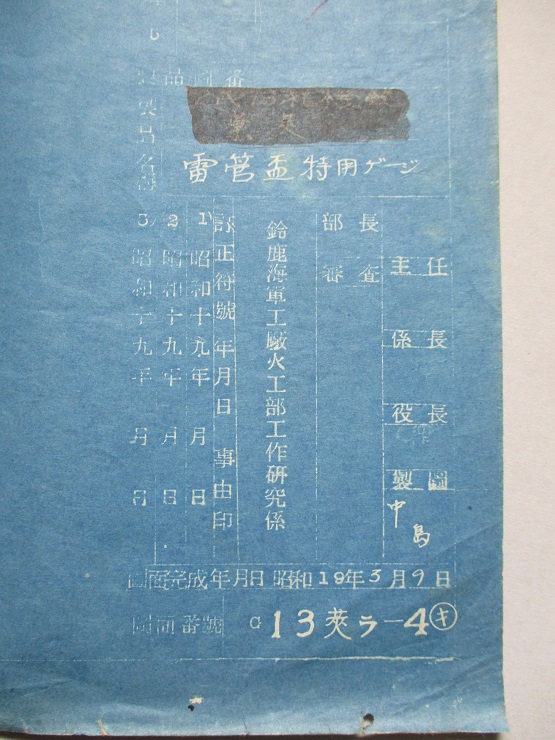 雷管盃特用ゲージ
主任
係長
役長
製圖
中島
部長
審査
鈴鹿海軍工廠火工部工作研究係
訂正符號 年月日 事由 印
1 昭和十九年 月 日
2 昭和十九年 月 日
3 昭和十九年 月 日
圖面完成年月日 昭和19年3月9日
圖面番號 G13莢ラ-4㋖